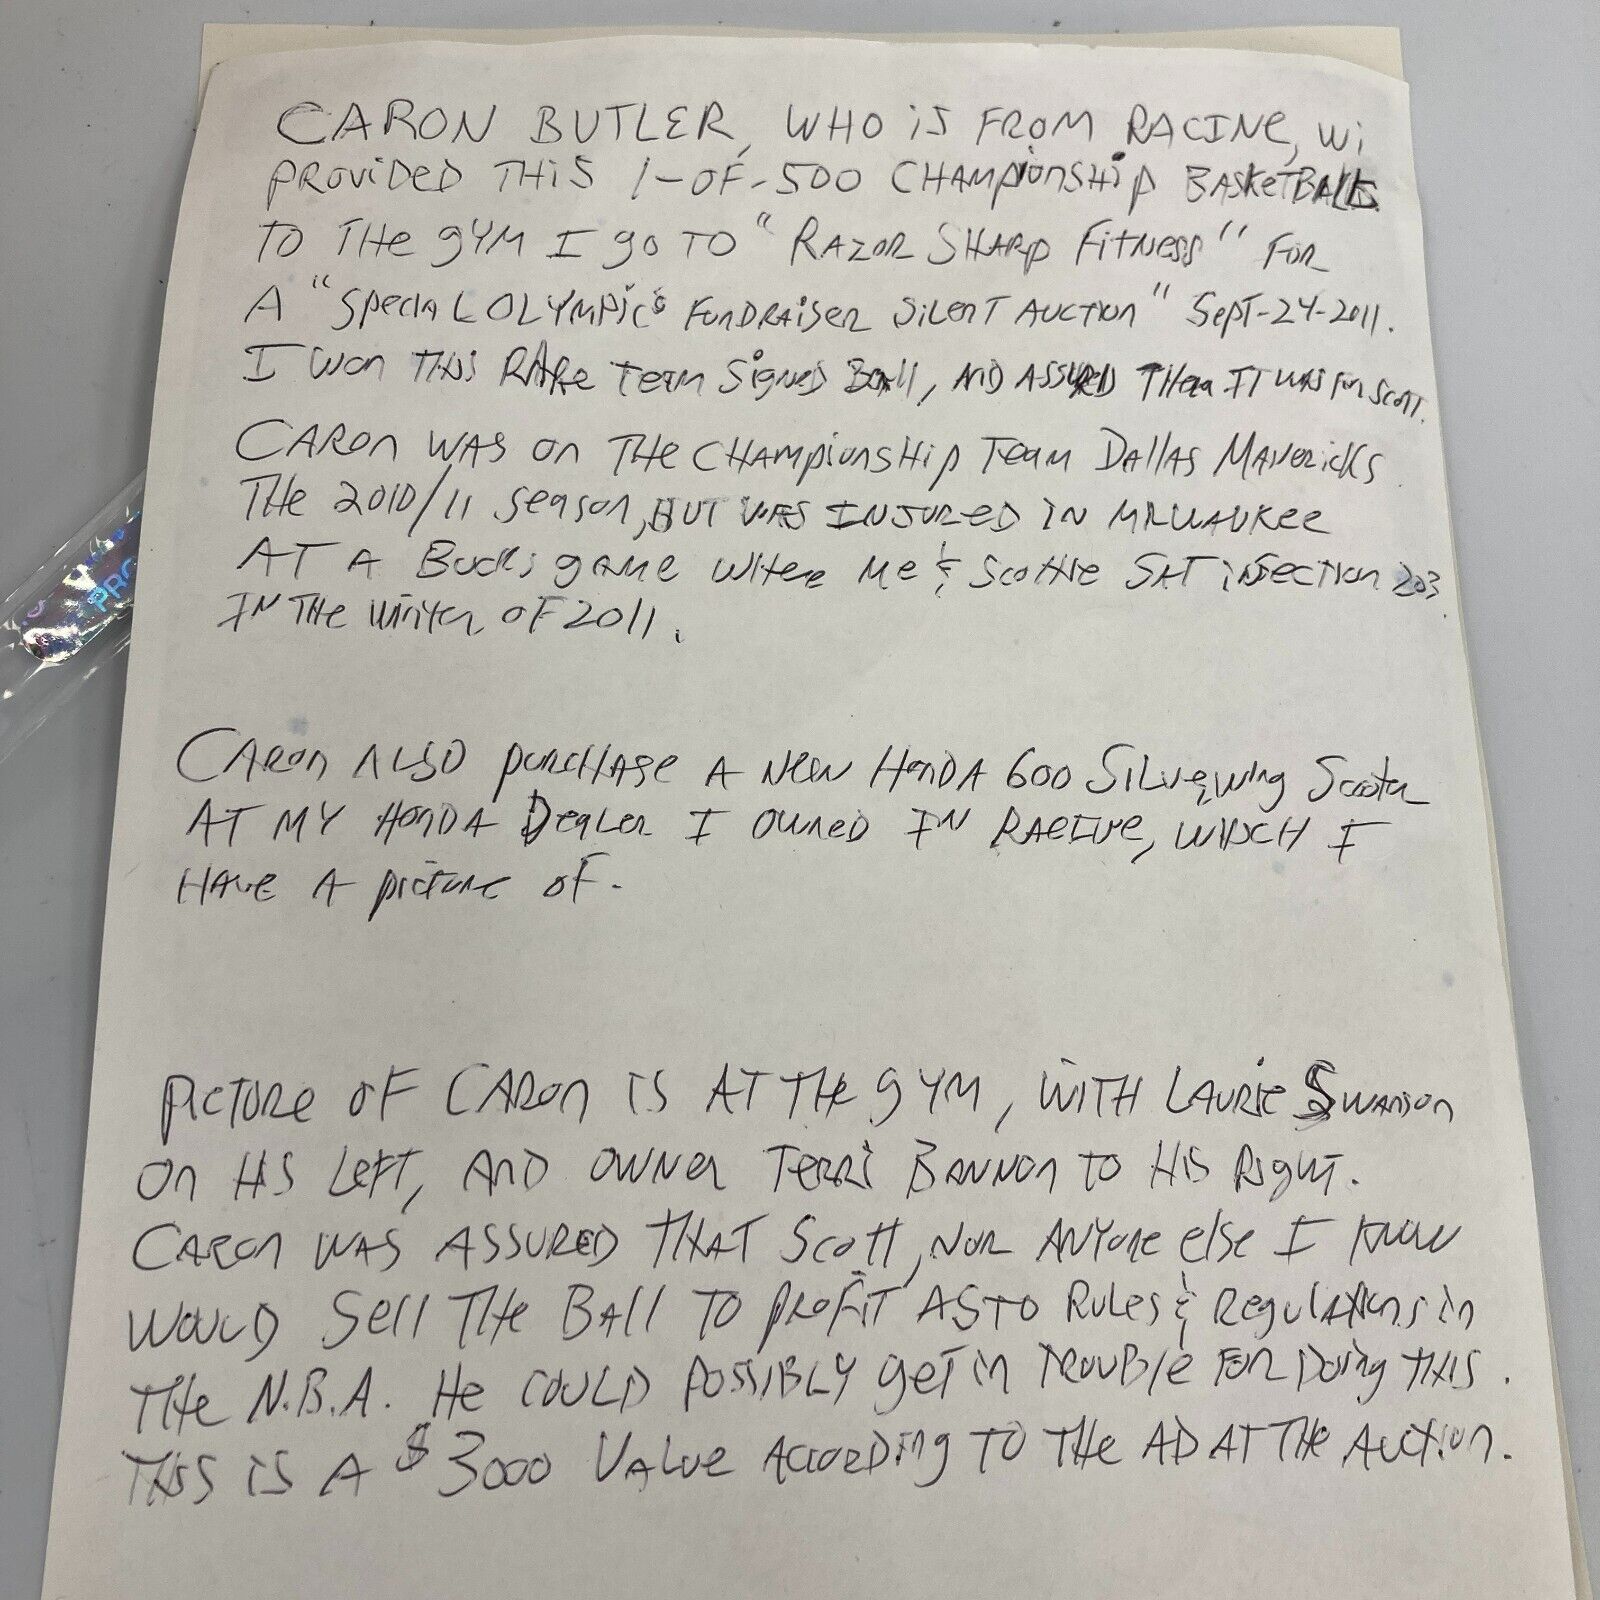 CARON BUTLER, WHO iS FROM RACINE, Wi
PROVIDED THIS 1-OF-500 CHAMPIONSHIP BASKETBALLS
TO THE GYM I GO TO "RAZOR SHARP FITNESS" FOR
A "SPECIAL OLYMPICS FUNDRAISER SILENT AUCTION" SEPT-24-2011.
I WON THIS RARE TEAM SIGNED BALL, AND ASSURED THEM IT WAS FOR SCOTT.
CARON WAS ON THE CHAMPIONSHIP TEAM DALLAS MAVERICKS
THE 2010/11 SEASON, BUT WAS INJURED IN MILWAUKEE
AT A BUCKS GAME WHERE ME & SCOTTIE SAT IN SECTION 203
IN THE WINTER OF 2011.
CARON ALSO PURCHASE A NEW HONDA 600 SILVERWING SCOOTER
AT MY HONDA DEALER I OWNED IN RACINE, WHICH I
HAVE A PICTURE OF.
PICTURE OF CARON IS AT THE GYM, WITH LAURIE SWANSON
ON HIS LEFT, AND OWNER TERRI BANNON TO HIS RIGHT.
CARON WAS ASSURED THAT SCOTT, NOR ANYONE ELSE I KNOW
WOULD SELL THE BALL TO PROFIT AS TO RULES & REGULATIONS IN
THE N.B.A. HE COULD POSSIBLY GET IN TROUBLE FOR DOING THIS.
THIS IS A $3000 VALUE ACCORDING TO THE AD AT THE AUCTION.
PRO